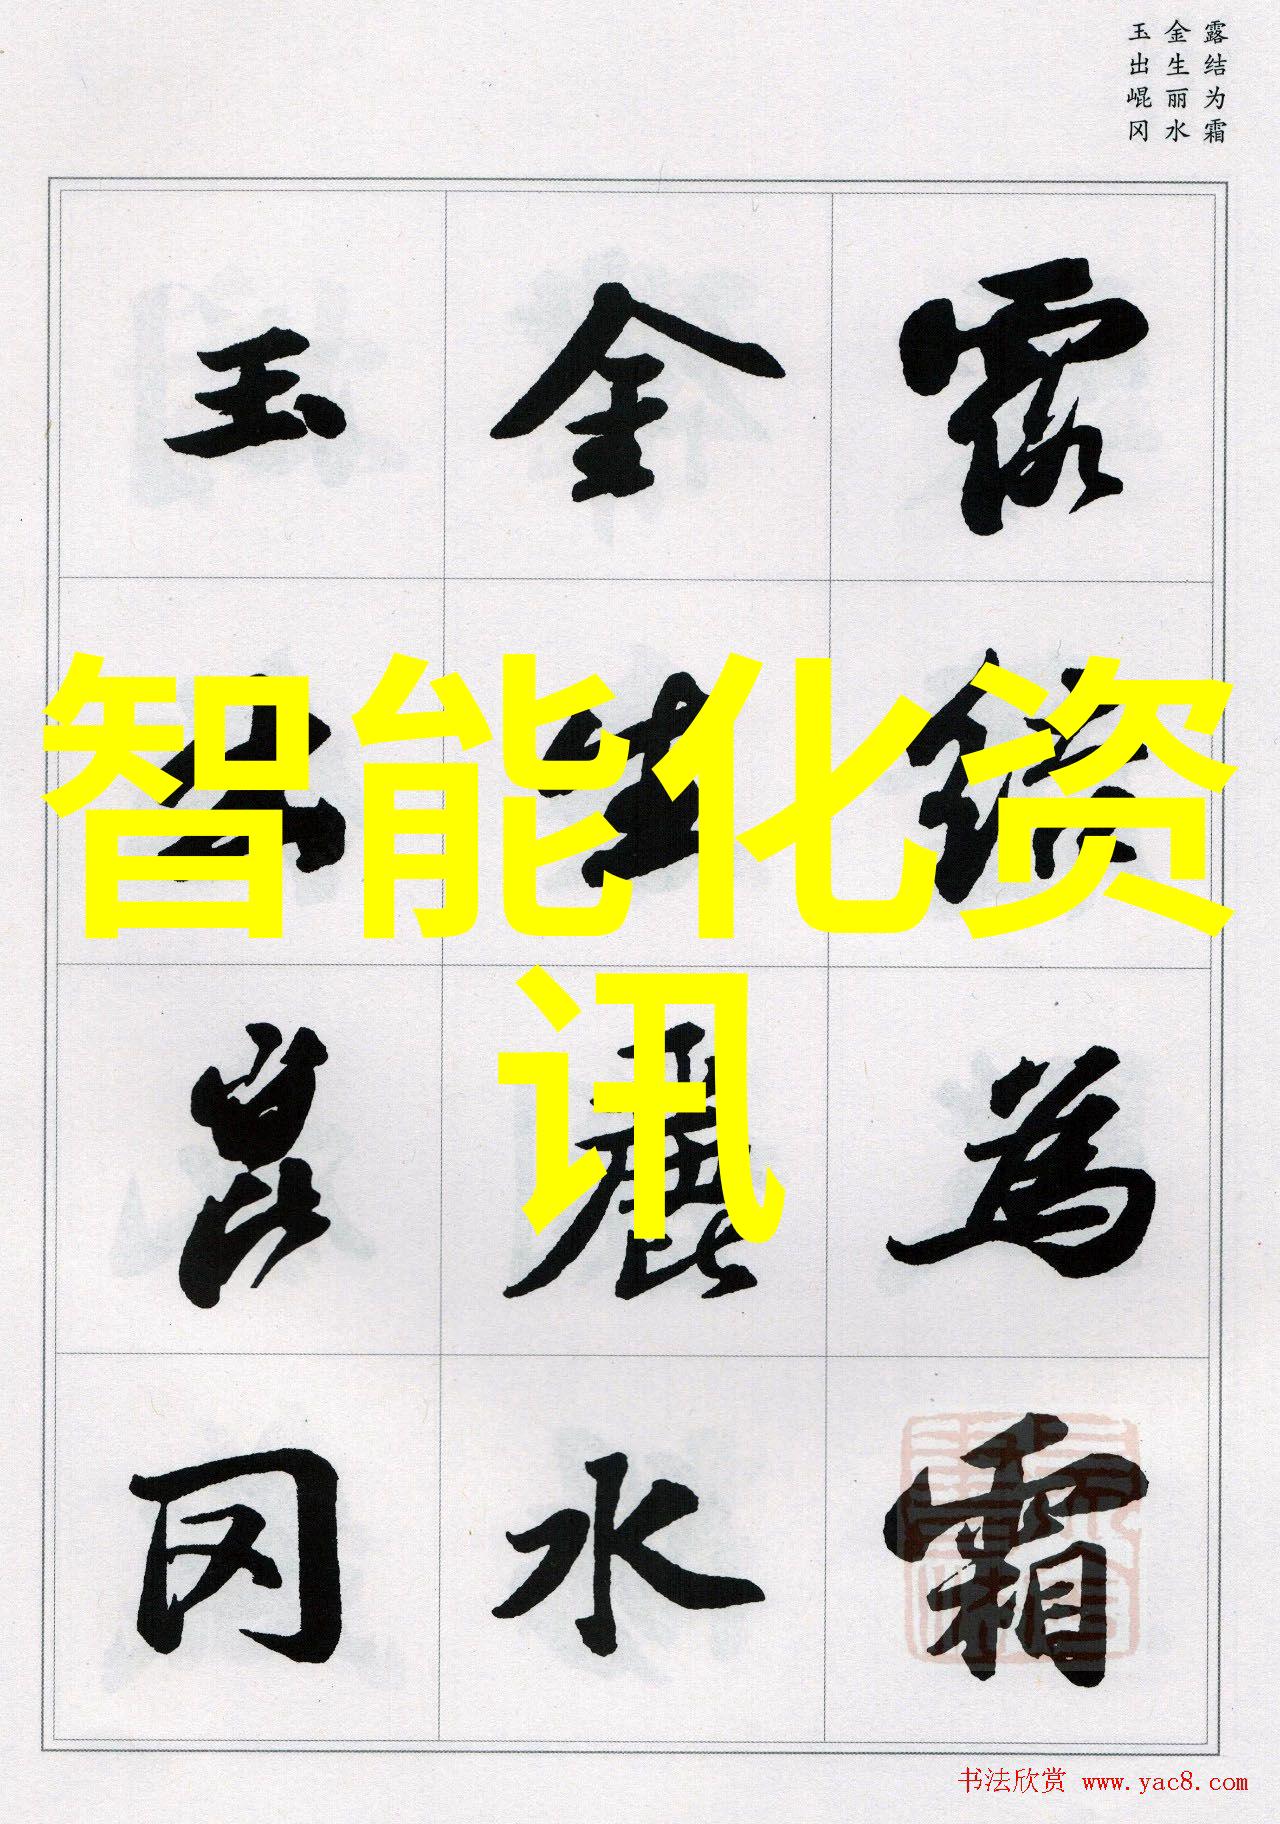 露结为霜
金生丽水
玉出崐冈
露結為霜
金生麗水
玉出崑冈
智能化资
讯
书法欣赏 www.yac8.com